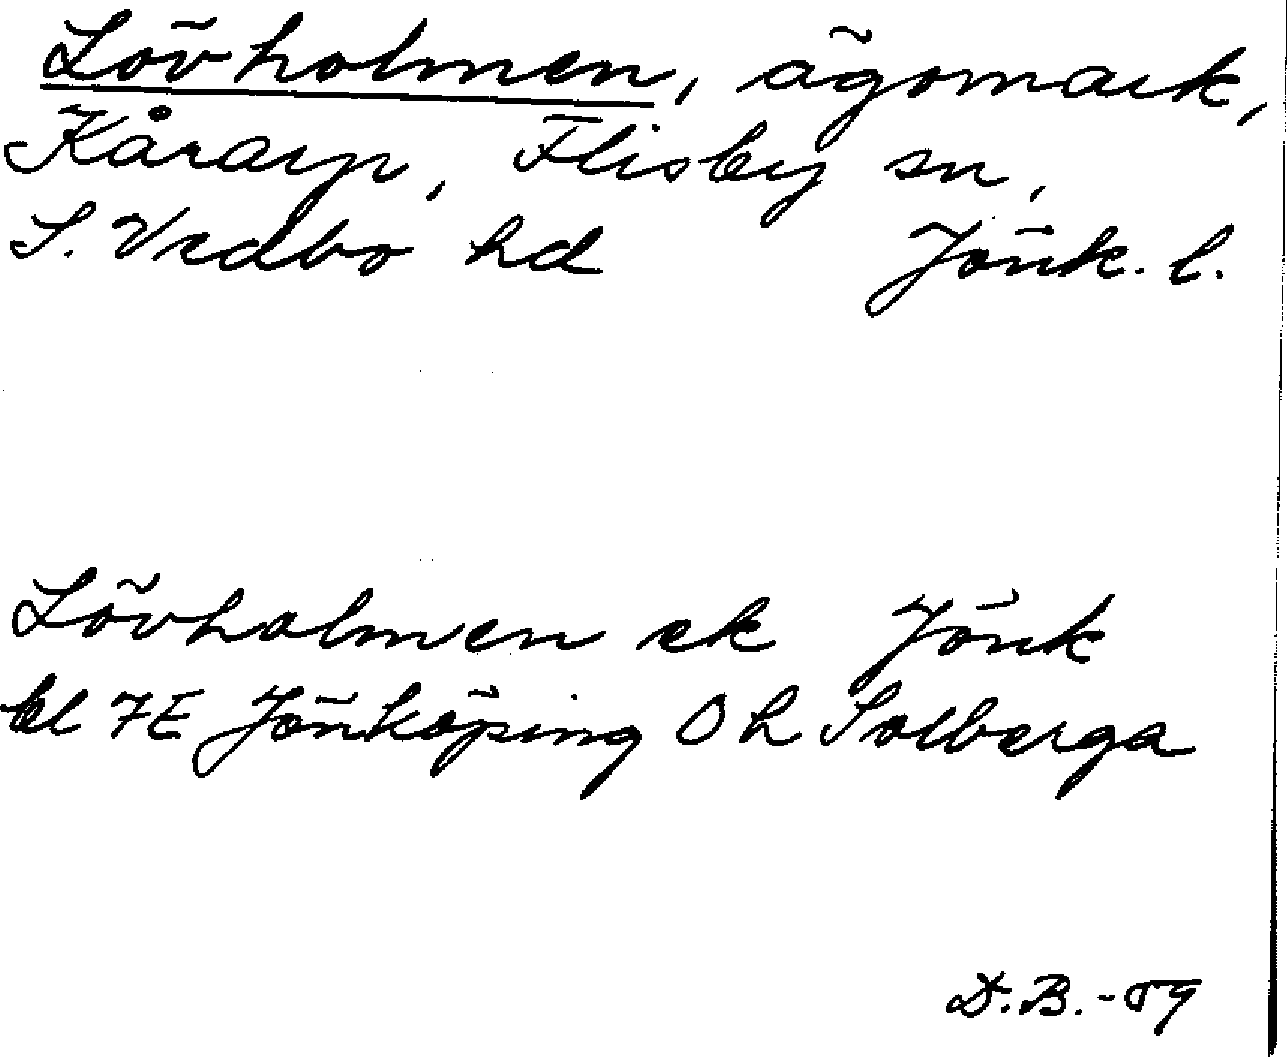 Lövholmen, ägomark,
Kårarp, Flisby sn,
S. Vedbo hd Jönk. l.
Lövholmen ek Jönk
bl 7E Jönköping Oh Solberga
D.B.-59